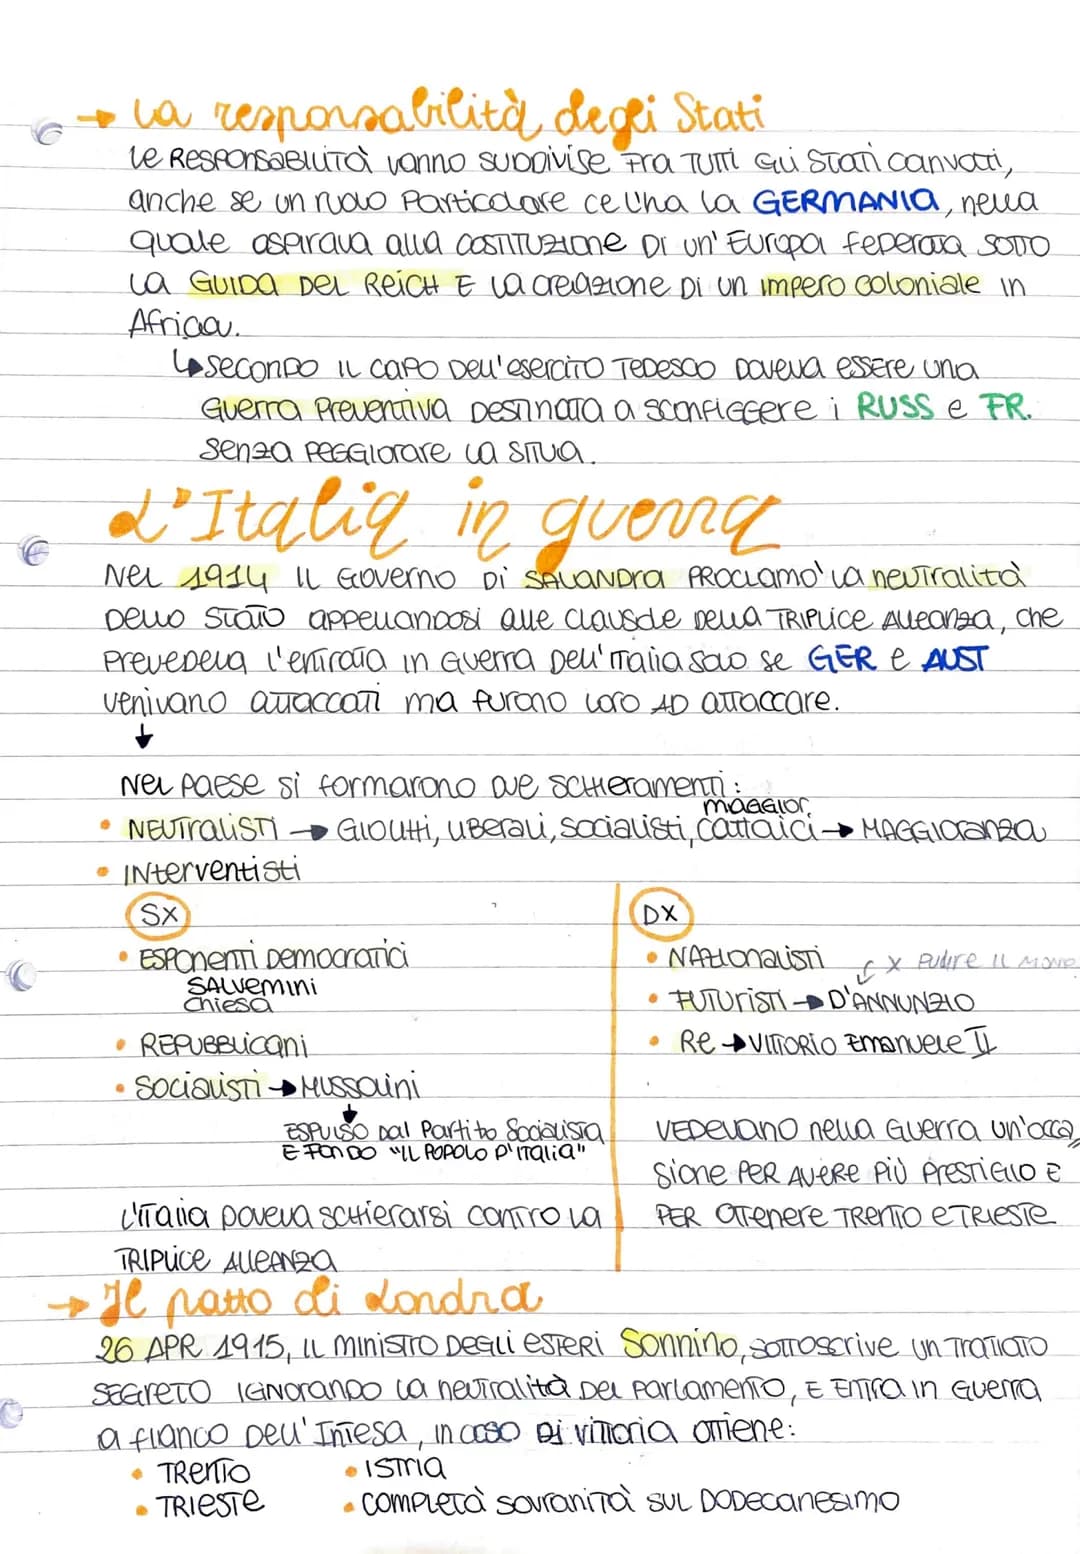 → La responsabilità degli Stati
Le RESPONSABILITÀ vanno SUDDIVISE FRA TUTTI GLI STATI canvati,
anche se un ruolo Particolare ce l'ha la GERMANIA, nella
quale aspirava alla COSTITUZIONE DI un' EUROPA FEDERATA SOTTO
LA GUIDA DEL REICH E la creazione DI un impero coloniale in
Africa.
↳ SECONDO IL CAPO Dell'esercito TEDESCO DOVEVA ESSERE una
Guerra Preventiva DESTINATA a sconfiggere i RUSS e FR.
senza PEGGIORARE LA SITUA.
L'Italia in guerra
NEL 1914 IL GOVERNO DI SALANDRA PROCLAMÒ la neutralità
DELLO STATO appellandosi alle clausole della TRIPLICE ALLEANZA, che
PREVEDEVA l'entrata in Guerra Dell'Italia solo se GER e AUST
venivano attaccati ma furono loro AD attaccare.
↓
NEL PAESE si formarono due SCHIERAMENTI:
maggior.
• NEUTRALISTI → Giolitti, liberali, socialisti, cattolici → MAGGIORANZA
• INterventisti
SX DX
• ESPONENTI DEMOCRATICI
SALVEMINI
Chiesa
• REPUBBLICANI
• SOCIALISTI → MUSSOLINI
↓
ESPULSO Dal Partito Socialista
E FONDO "IL POPOLO D'ITALIA"
L'Italia DOVEVA schierarsi contro la
TRIPLICE ALLEANZA
• NAZIONALISTI
x Pulire IL MOND
• FUTURISTI → D'ANNUNZIO
• RE → VITTORIO EMANUELE II
VEDEVANO nella Guerra un'occa
sione PER AVERE PIÙ PRESTIGIO E
PER OTTENERE TRENTO E TRIESTE
→ Il patto di Londra
26 APR 1915, IL MINISTRO DEGLI ESTERI Sonnino, sottoscrive un TRATTATO
SEGRETO IGNORANDO la neutralità DEL PARLAMENTO, E ENTRA in Guerra
a fianco Dell'Intesa, in caso DI vittoria ottiene:
• TRENTO • ISTRIA
• TRIESTE • COMPLETA SOVRANITÀ SUL DODECANESIMO